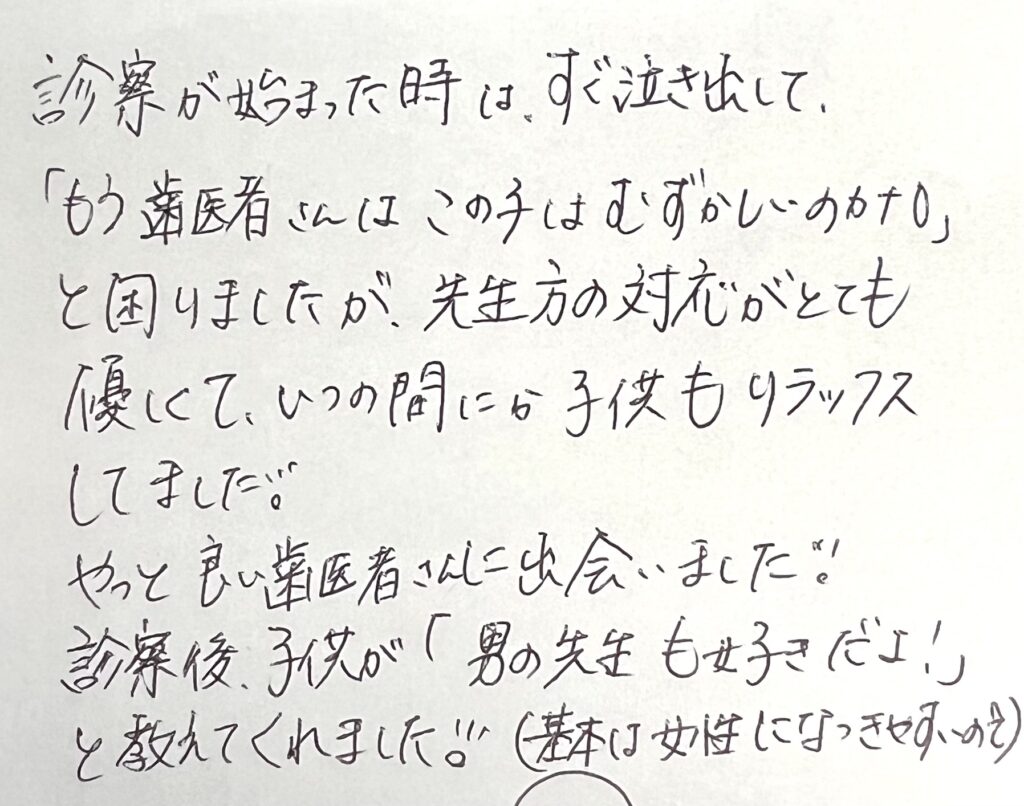 診察が始まった時は、すぐ泣き出して、
「もう歯医者さんはこの子はむずかしいのカナ0」
と困りましたが、先生方の対応がとても
優しくて、いつの間にか子供もリラックス
してました!!。
やっと良い歯医者さんに出会いました!!
診察後、子供が「男の先生も好きだよ!」
と教えてくれました!!。(基本は女性になつきやすいので)